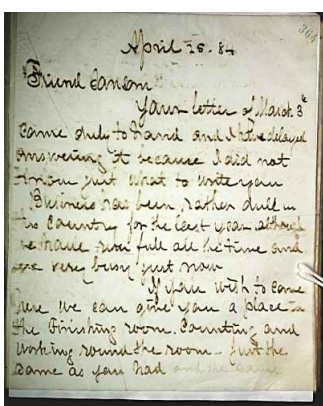 364
April 25. 84
Friend Sansom
Your letter of March 3d
Came duly to hand and I have delayed
answering it because I did not
Know just what to write you
Business has been rather dull in
this Country for the last year although
we have run full all the time and
are very busy just now
If you wish to come
here we can give you a place in
the Finishing room. Counting and
working round the room. Just the
Same as you had and the Same